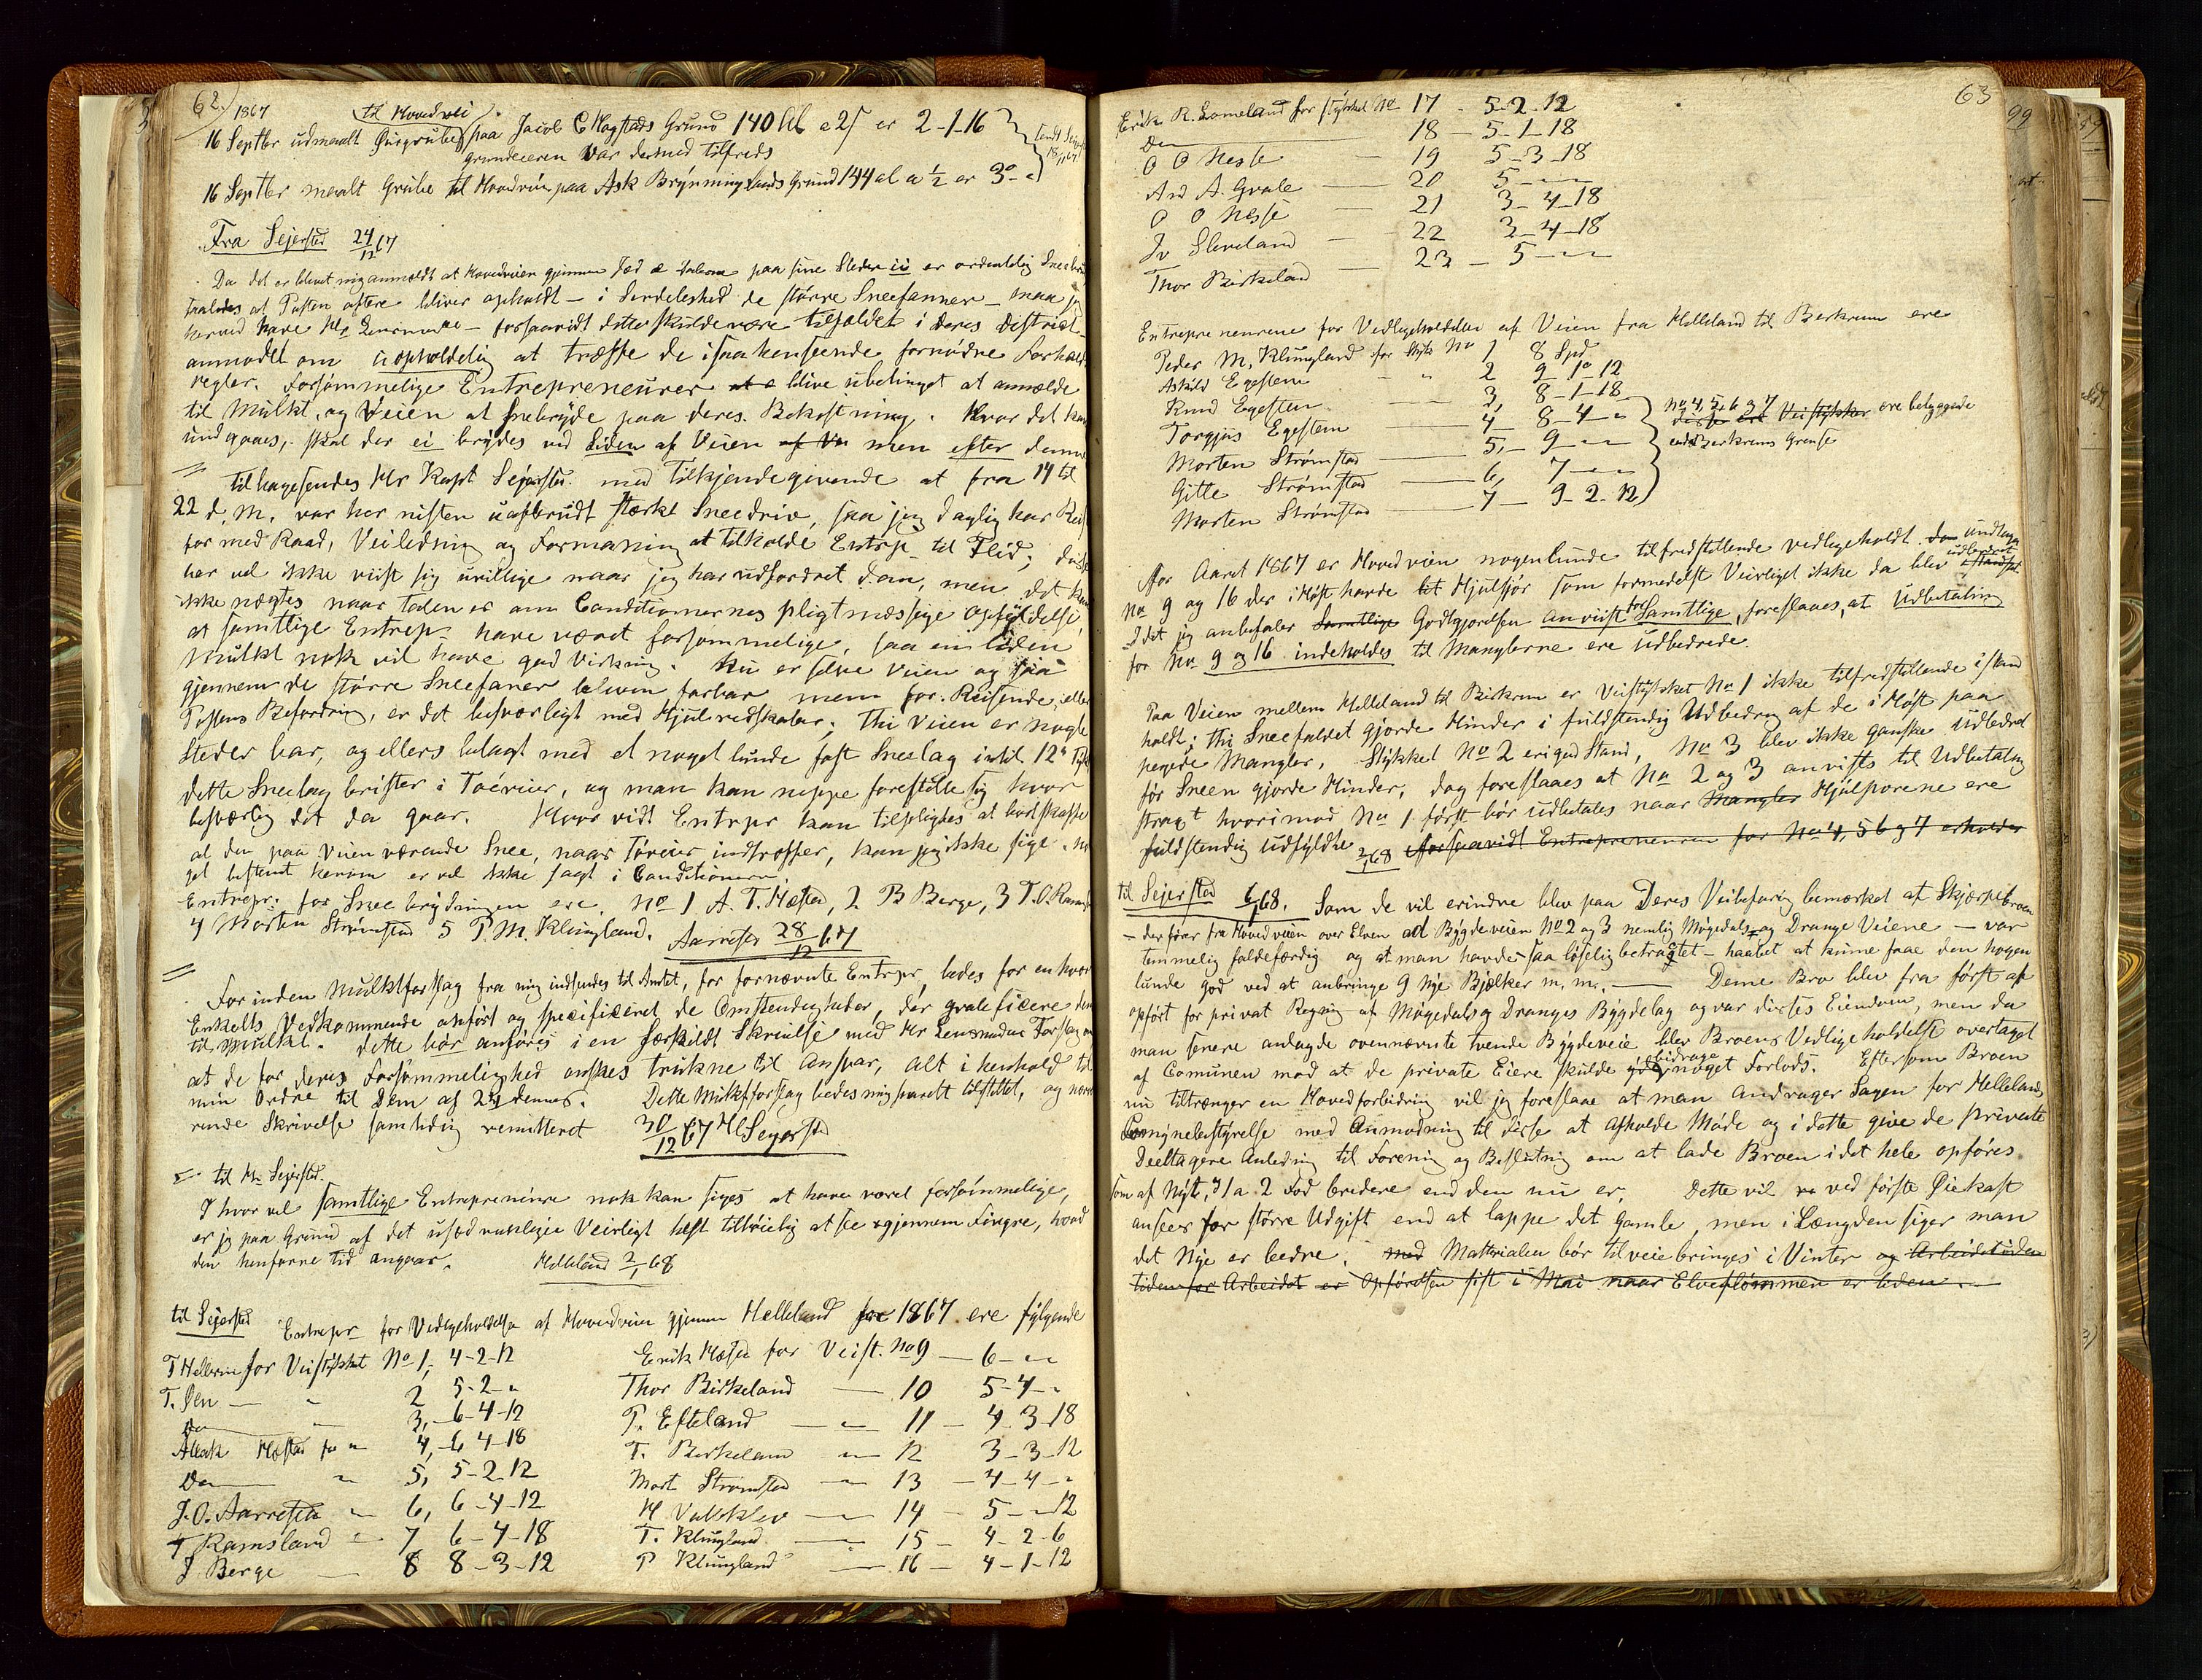 62.
1867 til Hovedvei
16 Septbr udmaalt Gruusgrube paa Jacob C Hogstads Grund 140 Al a 2 s er 2-1-16
Grundeieren var dermed tilfreds
16 Septbr maalt Grube til Hovedveien paa Ask Brynnings Grund 144 al a ½ er 3
Fra Sejersted 24/12 67
Da det er blevet mig anmældt at Hovedveien gjennem paa sine Steder ei er ordentlig Sneebrudt
at Posten oftere bliver opholdt - i Serdeleshed de større Sneefanner - maa jeg
herved have Hr Lensmanden - forsaavidt dette skulde være tilfældet i Deres District
anmodet om uopholdelig at træffe de i saa henseende fornødne Forholds
regler. Forsømmelige Entrepreneurer blive ubetinget at anmælde
til Mulkt, og Veien at snebryde paa deres Bekostning. Hvor det kan
undgaaes, skal der ei brydes ved Siden af Veien af Ve men efter denne
Tilbagesendes Hr Kapt Sejersted med Tilkjendegivende at fra 14 til
22 d. M. var her næsten uafbrudt stærkt Sneedriv, saa jeg daglig har
for med Raad, Veiledning og Formaning at tilholde Entrp. til Flid; disse
har vel ikke viist sig uvillige naar jeg har udfordret dem, men det kan
ikke nægtes naar Talen er om Conditionernes pligtmæssige Opfyldelse,
at samtlige Entrep. have været forsømmelige, saa en liden
Mulkt nok vil have god Virkning. Nu er selve Veien og saa
gjennem de større Sneefaner bleven farbar men for Reisende, eller
Postens Befordring, er det besværligt med Hjulredskaber; Thi Veien er nogle
Steder bar, og ellers belagt med et noget lunde fast Sneelag indtil 12"
dette Sneelag brister i Tøveir, og man kan neppe forestille sig hvor
besværlig det da gaar. Hvor vidt Entrpr kan tilpligtes at bortskaffe
al den paa Veien værende Snee, naar Tøveir indtræffer, kan jeg ikke sige, no
get bestemt herom er vel ikke sagt i Conditionerne.
Entrepr. for Sneebrydningen ere, No 1 A. T. Hæstad, 2 B Berge, 3 T. O. Ramsl
4 Morten Strømstad 5 P. M. Klungland. Aarrestad 28/12 67
Forinden Mulktforslag fra mig indsendes til Amtet, for fornævnte Entrpr, bedes for enhver
Enkelts Vedkommende anført og specificeret de Omstendigheder, der qvalificere dem
til Mulkt. Dette bør anføres i en særskildt Skrivelse med Hr Lensmandens Forslag om
at de for deres Forsømmelighed ønskes trukne til Ansvar, alt i henhold til
min Ordre til Dem af 24 dennes. Dette Mulktforslag bedes mig snarest tilstillet, og nærvæ
rende Skrivelse samtidig remitteret 30/12 67 Sejersted
til Hr Sejersted.
Ihvorvel samtlige Entreprenører nok kan siges at have været forsømmelige,
er jeg paa Grund af det usædvanlige Veirligt helst tilbøielig at see igjennem Fingre, hvad
den henfarne Tid angaar. Helleland 2/1 68
til Sejersted Entrepr for Vedligeholdelse af Hovedveien gjennem Helleland for 1867 ere følgende
T Helleren for Veistykket No 1, 4-2-12
T. Øen 2 5-2-"
Do 3, 6-4-12
Aslak Hæstad for 4, 6 4-18
Do 5, 5-2-12
J. O. Aarrestad 6, 6-4-12
T Ramsland 7 6-4-18
J Berge 8 8-3-12
Erik Hæstad for Veist. No 9 - 6-"-"
Thor Birkeland 10 5-4-"
P. Efteland 11 - 4 3-18
T. Birkeland 12 3-3-12
Mort Strømstad 13 - 4-4-"
H Vatsklev 14 - 5-"-12
T. Klungland 15 - 4-2-6
P Klungland 16 - 4-1-12
63
Erik R. Lomeland for stykket No 17 - 5-2-12
Do 18 - 5-1-18
O O Nesse 19 5-3-18
Ard A. Gvale 20 5-"-"
O O Nesse 21 3-4-18
Jv Sleveland 22 2-4-18
Thor Birkeland 23 - 5-"-"
Entreprenerene for Vedligeholdelse af Veien fra Helleland til Berkrem ere
Peder M. Klungland for Stykke No 1 8 Spd
Askild Egestem 2 9-1-12
Knud Egestem 3, 8-1-18
Torgjus Egestem 4 8-4-"
Morten Strømstad 5, 9-"-"
Gitle Strømstad 6, 7-"-"
Morten Strømstad 7 - 9-2-12
No 4, 5, 6 og 7
Veistykker ere beliggende
Berkrems Grense
For Aaret 1867 er Hovedveien nogenlunde tilfredstillende vedligeholdt undtagen
No 9 og 16 der i Høst havde lit Hjulspor som formedelst Veirliget ikke da blev udbedret
Idet jeg anbefaler Samtlige Godtgjørelsen anviist for Samtlige, foreslaaes, at Udbetaling
for No 9 og 16 indeholdes til Manglerne ere udbedrede.
Paa Veien mellem Helleland til Birkrem er Veistykket No 1 ikke tilfredstillende istand
holdt; thi Sneefaldet gjorde Hinder i fuldstendig Udbedring af de i Høst paa
pegede Mangler. Stykket No 2 er i god Stand, No 3 blev ikke ganske udbedret
før Sneen gjorde Hinder, dog foreslaaes at No 2 og 3 anvises til Udbetaling
stragt hvorimod No 1 først bør udbetales naar Mangler Hjulsporene ere
fuldstendig udfyldte 2/1 68 forsaavidt Entreprenerene for No 4, 5 6 og 7 erholder
til Sejersted 6/1 68. Som de vil erindre blev paa Deres Veibefaring bemærket at Skjerpebroen
- der fører fra Hovedveien over Elven ad Bygdeveien No 2 og 3 nemlig Møgedals og Drange Veiene - var
temmelig faldefærdig og at man havde saa løselig betragtet - haabet at kunne faae den nogen
lunde god ved at anbringe 9 nye Bjelker m. m. Denne Bro blev fra først af
opført for privat Regning af Møgedals og Dranges Bygdelag og var disses Eiendom, men da
man senere anlagde ovennævnte tvende Bygdeveie blev Broens Vedligeholdelse overtaget
af Comunen mod at de private Eiere skulde bidrage noget Forlods. Eftersom Broen
nu tiltrænger en Hovedforbedring vil jeg foreslaae at man andrager Sagen for Hellelands
Formynebestyrelse med Anmodning til disse at afholde Møde og i dette give de private
Deeltagere Anledning til Forening og Beslutning om at lade Broen i det hele opføres
som af Nyt, 1 a 2 Fod bredere end den nu er. Dette vil ved første Øiekast
ansees for større Udgift end at lappe det Gamle, men i Længden siger man
det Nye er bedre. med Materialen bør tilveiebringes i Vinter og Arbeidstiden
tiden for Arbeidet er Opførelsen sist i Mai naar Elveflømmen er liden